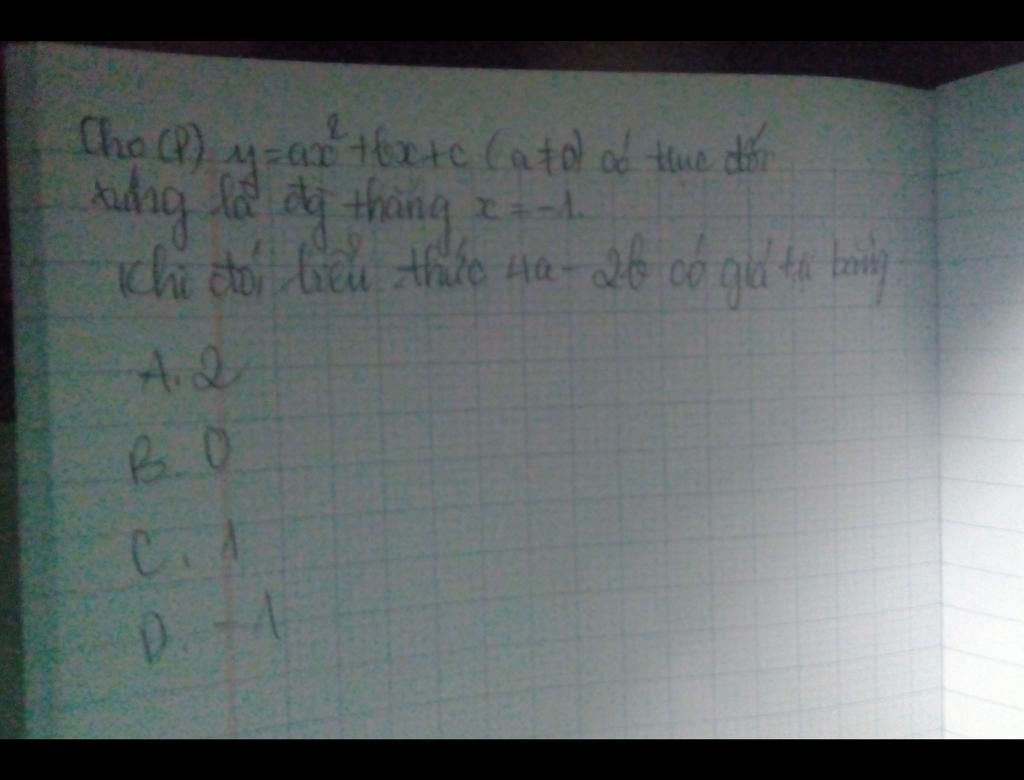 Cho (P) y=ax²+bx+c (a≠0) có trục đối
xứng là đg thẳng x = -1.
Khi đó biểu thức 4a - 2b có giá trị bằng
A. 2
B. 0
C. 1
D. -1